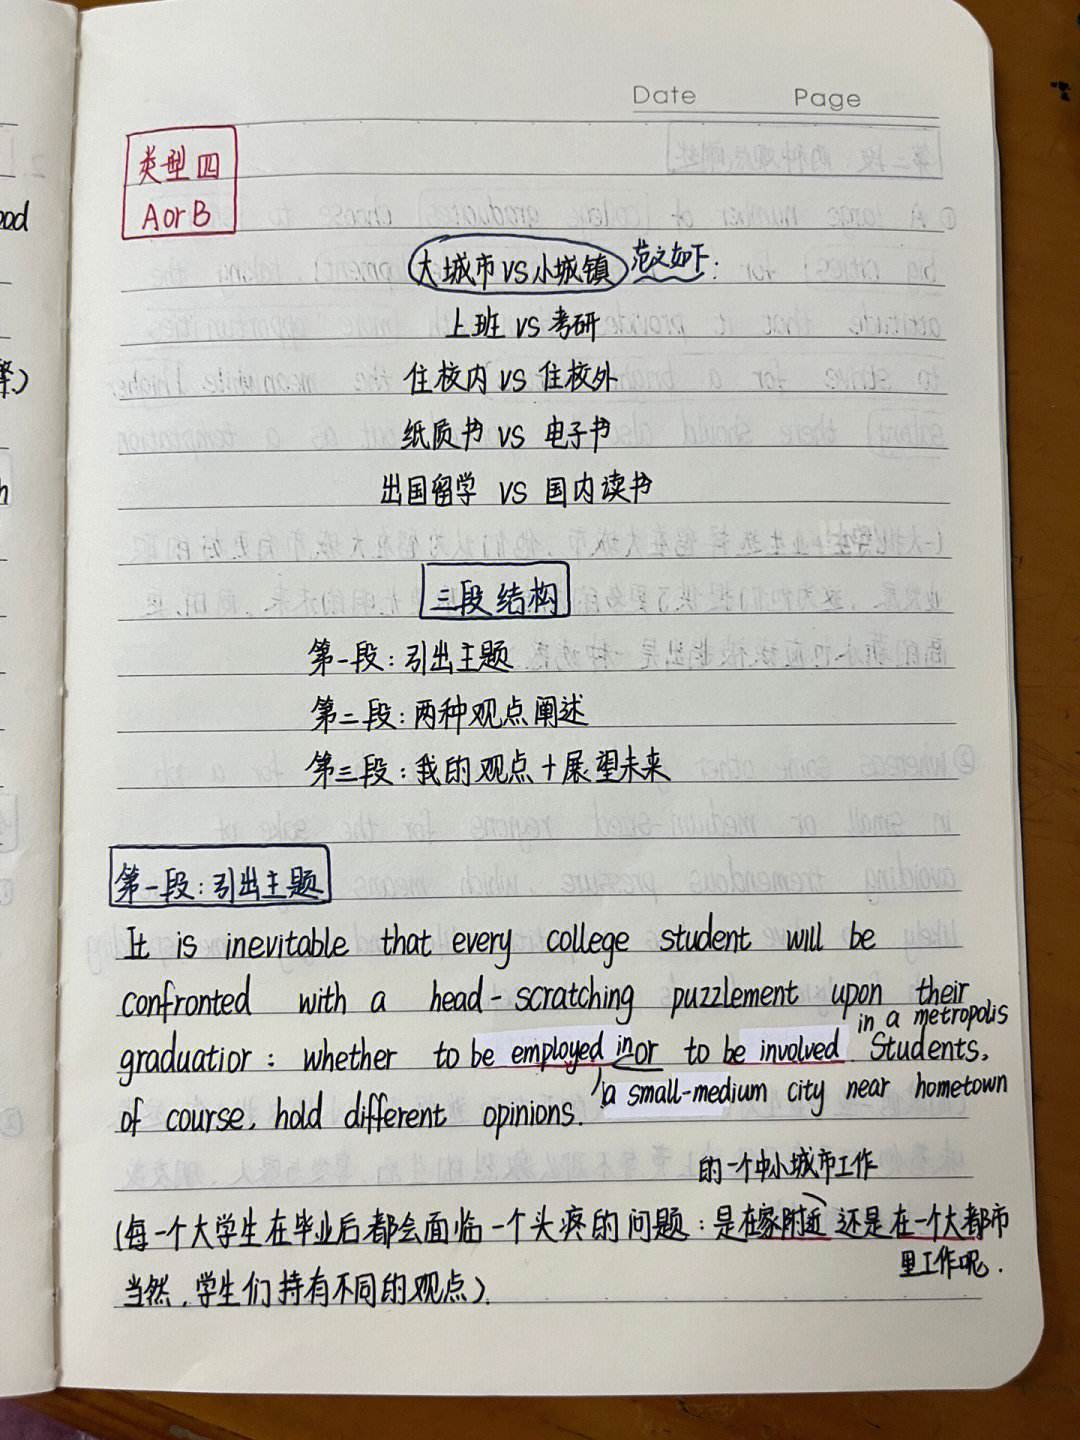 Date Page
类型四
A or B
大城市 VS 小城镇 范文如下:
上班 VS 考研
住校内 VS 住校外
纸质书 VS 电子书
出国留学 VS 国内读书
三段结构
第一段:引出主题
第二段:两种观点阐述
第三段:我的观点+展望未来
第一段:引出主题
It is inevitable that every college student will be
confronted with a head-scratching puzzlement upon their
in a metropolis
graduatior: whether to be employed in or to be involved. Students,
a small-medium city near hometown
of course, hold different opinions.
的一个中小城市工作
(每一个大学生在毕业后都会面临一个头疼的问题:是在家附近还是在一个大都市
里工作呢.
当然,学生们持有不同的观点).